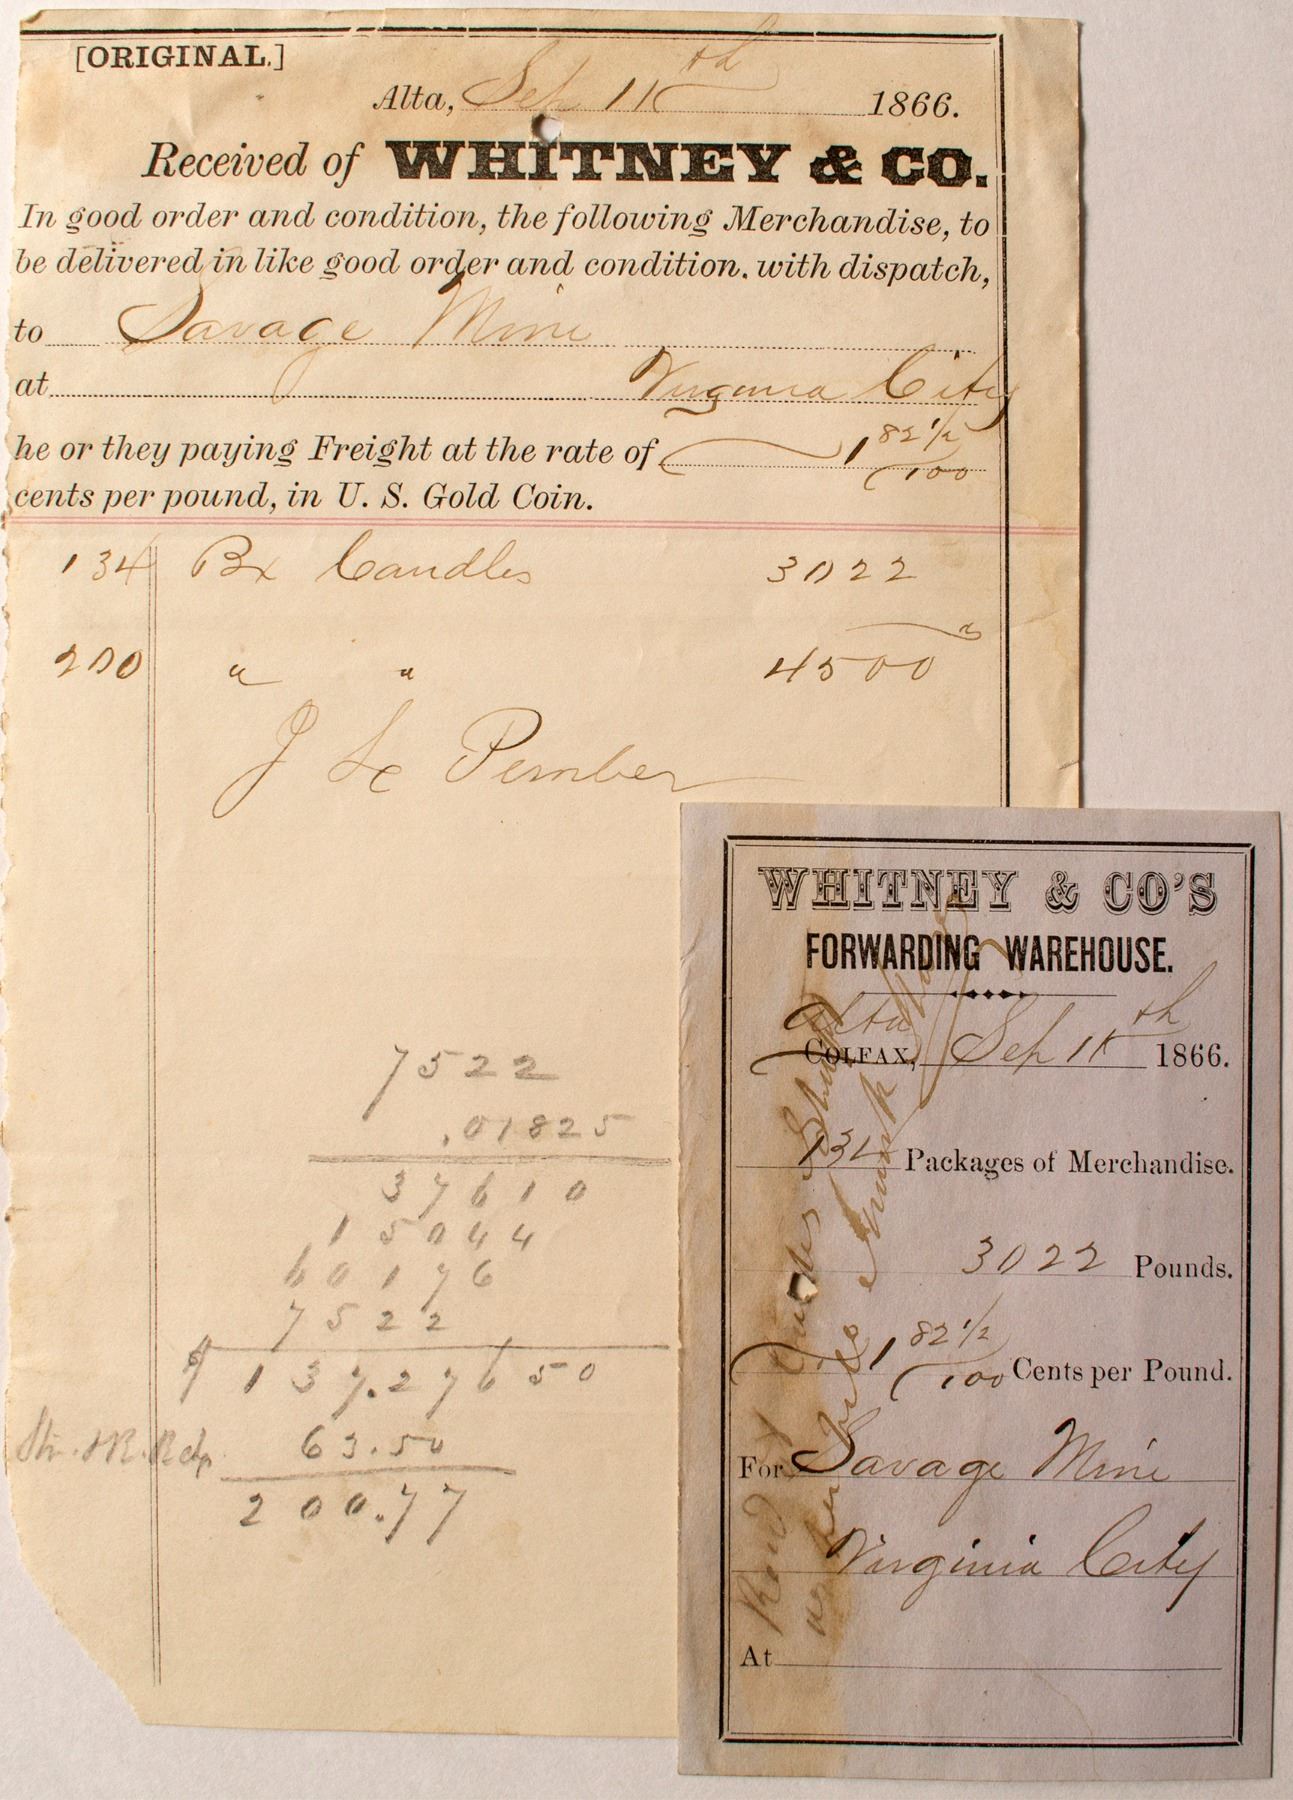 [ORIGINAL.]
Alta, Sep 11th 1866.
Received of WHITNEY & CO.
In good order and condition, the following Merchandise, to
be delivered in like good order and condition. with dispatch,
to Savage Mine
at Virginia City
he or they paying Freight at the rate of 1 82 1/2 / 100
cents per pound, in U. S. Gold Coin.
134 Bx Candles 3022
200 " " 4500
J Pember
7522
.01825
37610
15044
60176
7522
$ 137.27650
63.50
200.77
WHITNEY & CO'S
FORWARDING WAREHOUSE.
Alta
COLFAX, Sep 11th 1866.
134 Packages of Merchandise.
3022 Pounds.
1 82 1/2 / 100 Cents per Pound.
For Savage Mine
Virginia City
At